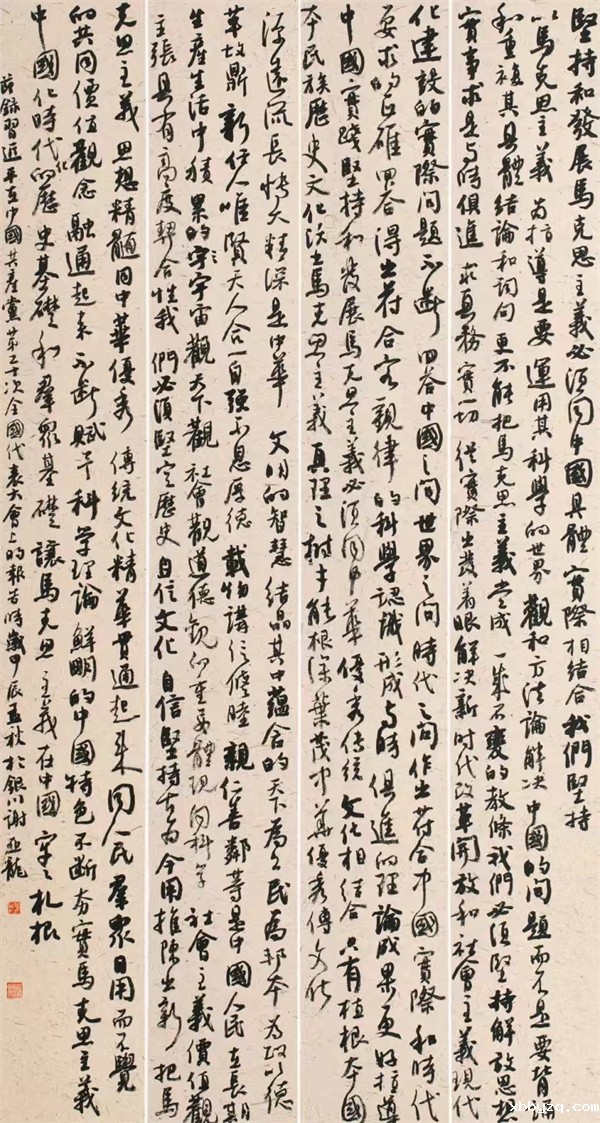 堅持和發展馬克思主義必須同中國具體實際相結合我們堅持
以馬克思主義為指導是要運用其科學的世界觀和方法論解決中國的問題而不是要背誦
和重複其具體結論和詞句更不能把馬克思主義當成一成不變的教條我們必須堅持解放思想
實事求是與時俱進求真務實一切從實際出發着眼解決新時代改革開放和社會主義現代
化建設的實際問題不斷回答中國之問世界之問時代之問作出符合中國實際和時代
要求的正確回答得出符合客觀律的科學認識形成與時俱進的理論成果更好指導
中國實踐堅持和發展馬克思主義必須同中華優秀傳統文化相結合只有植根本國
本民族歷史文化沃土馬克思主義真理之樹才能根深葉茂中華優秀傳文化
源遠流長博大精深是中華文明的智慧結晶其中蘊含的天下為公民為邦本為政以德
革故鼎新任人唯賢天人合一自強不息厚德載物講信修睦親仁善鄰等是中國人民在長期
生產生活中積累的宇宙觀天下觀社會觀道德觀的重要體現同科學社會主義價值觀
主張具有高度契合性我們必須堅定歷史自信文化自信堅持古為今用推陳出新把馬
克思主義思想精髓同中華優秀傳統文化精華貫通起來同人民羣眾日用而不覺
的共同價值觀念融通起來不斷賦予科學理論鮮明的中國特色不斷夯實馬克思主義
中國化時代化的歷史基礎和羣眾基礎讓馬克思主義在中國牢牢扎根
節錄習近平在中國共產黨第二十次全國代表大會上的報告時歲甲辰孟秋於銀川謝亞龍
xbbyzq.com